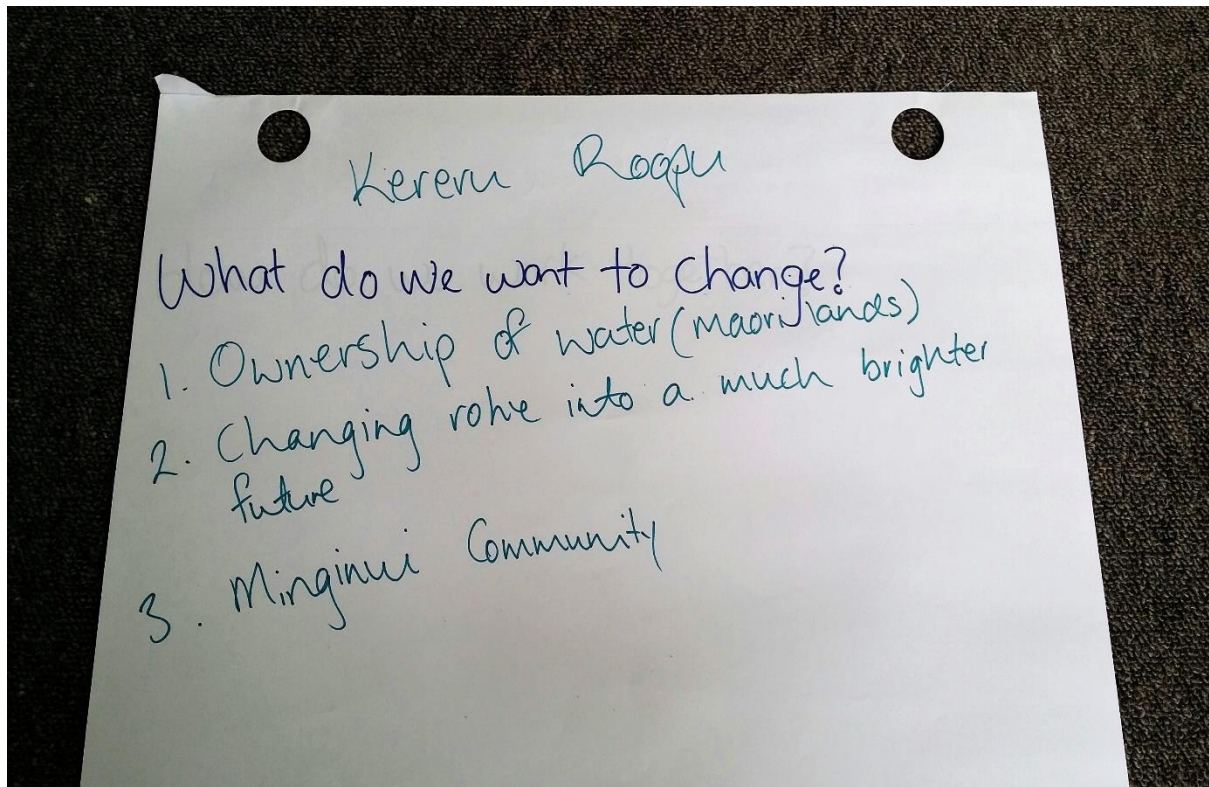 Kereru Roopu
What do we want to change?
1. Ownership of water (maori lands)
2. Changing rohe into a much brighter
future
3. Minginui Community